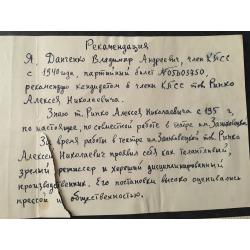 Рекомендация
Я, Данченко Владимир Андреевич, член КПСС
с 1940 года, партийный билет №05605450,
рекомендую кандидатом в члены КПСС тов. Рипко
Алексея Николаевича.
Знаю т. Рипко Алексея Николаевича с 195 г,
по настоящее, по совместной работе в театре им.
За время работы в театре им. тов. Рипко
Алексей Николаевич проявил себя как талантливый,
зрелый режиссер и хороший дисциплинированный
производственник, его постановки высоко оценивались
прессой и общественностью.